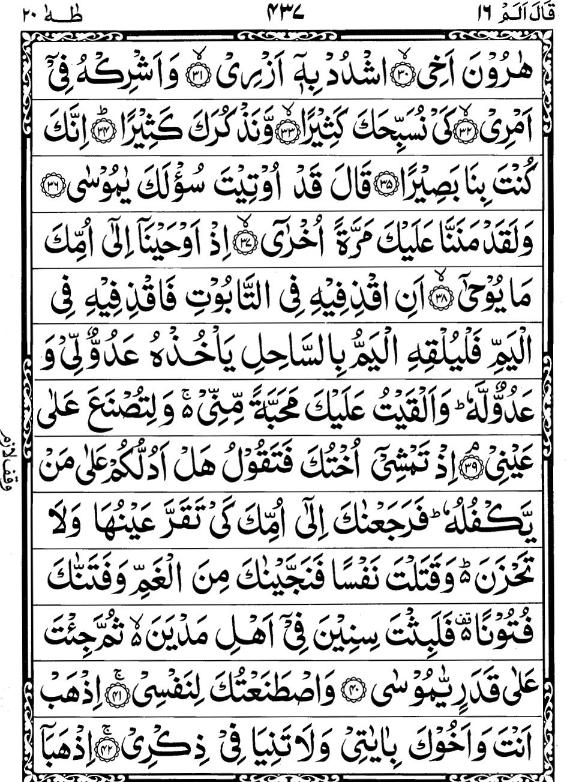 قَالَ اَلَمْ ١٦
٤٣٧
طٰهٰ ٢٠
هٰرُوْنَ اَخِى ۙ﴿٣٠﴾ اشْدُدْ بِهٖۤ اَزْرِىْ ۙ﴿٣١﴾ وَاَشْرِكْهُ فِىْۤ
اَمْرِىْ ۙ﴿٣٢﴾ كَىْ نُسَبِّحَكَ كَثِيْرًا ۙ﴿٣٣﴾ وَّنَذْكُرَكَ كَثِيْرًا ؕ﴿٣٤﴾ اِنَّكَ
كُنْتَ بِنَا بَصِيْرًا ﴿٣٥﴾ قَالَ قَدْ اُوْتِيْتَ سُؤْلَكَ يٰمُوْسٰى ﴿٣٦﴾
وَلَقَدْ مَنَنَّا عَلَيْكَ مَرَّةً اُخْرٰٓى ۙ﴿٣٧﴾ اِذْ اَوْحَيْنَاۤ اِلٰٓى اُمِّكَ
مَا يُوْحٰٓى ۙ﴿٣٨﴾ اَنِ اقْذِفِيْهِ فِى التَّابُوْتِ فَاقْذِفِيْهِ فِى
الْيَمِّ فَلْيُلْقِهِ الْيَمُّ بِالسَّاحِلِ يَاْخُذْهُ عَدُوٌّ لِّىْ وَ
عَدُوٌّ لَّهٗ ؕ وَاَلْقَيْتُ عَلَيْكَ مَحَبَّةً مِّنِّىْ ۚ۬ وَلِتُصْنَعَ عَلٰى
عَيْنِىْ ۘ﴿٣٩﴾ اِذْ تَمْشِىْۤ اُخْتُكَ فَتَقُوْلُ هَلْ اَدُلُّكُمْ عَلٰى مَنْ
يَّكْفُلُهٗ ؕ فَرَجَعْنٰكَ اِلٰٓى اُمِّكَ كَىْ تَقَرَّ عَيْنُهَا وَلَا
تَحْزَنَ ؕ۬ وَقَتَلْتَ نَفْسًا فَنَجَّيْنٰكَ مِنَ الْغَمِّ وَفَتَنّٰكَ
فُتُوْنًا ۬۫ فَلَبِثْتَ سِنِيْنَ فِىْۤ اَهْلِ مَدْيَنَ ۙ۬ ثُمَّ جِئْتَ
عَلٰى قَدَرٍ يّٰمُوْسٰى ﴿٤٠﴾ وَاصْطَنَعْتُكَ لِنَفْسِىْ ۚ﴿٤١﴾ اِذْهَبْ
اَنْتَ وَاَخُوْكَ بِاٰيٰتِىْ وَلَا تَنِيَا فِىْ ذِكْرِىْ ۚ﴿٤٢﴾ اِذْهَبَاۤ
وقف لازم